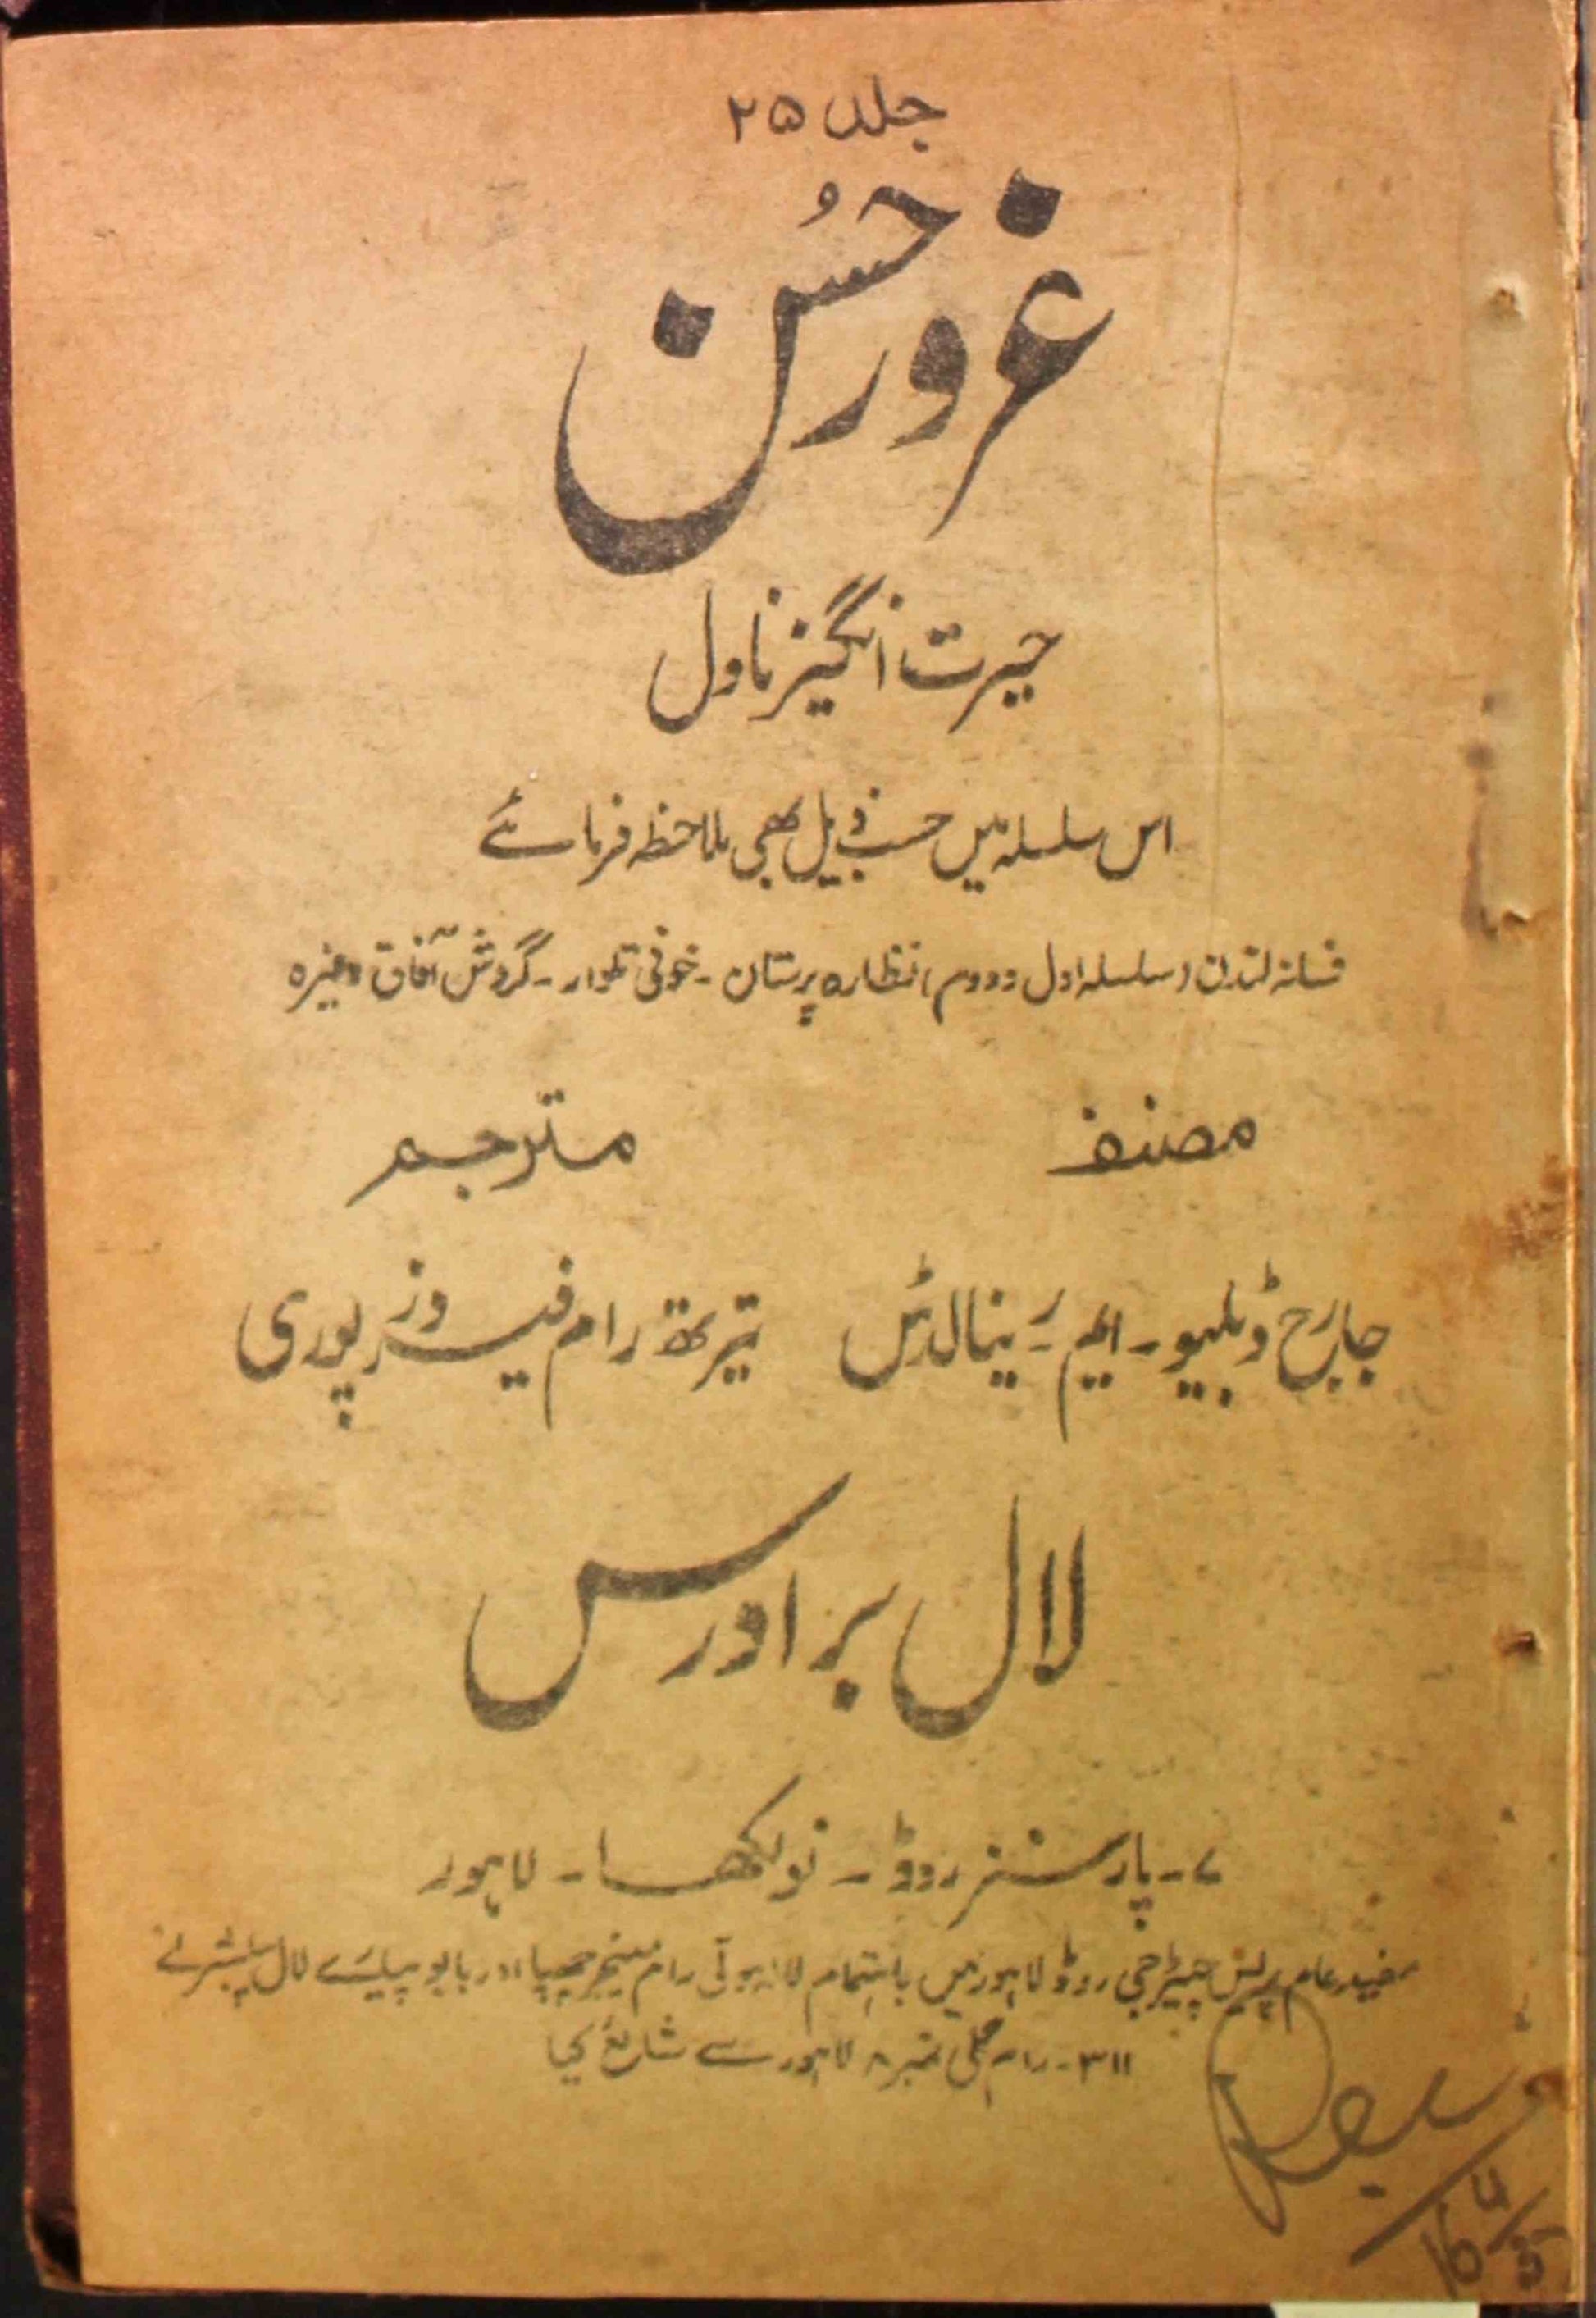 جلد ۲۵
غرور حُسن
حیرت انگیز ناول
اس سلسلہ میں حسب ذیل بھی ملاحظہ فرمائے
فسانہ لندن (سلسلہ اول و دوم) نظارہ پرستان - خونی تلوار - گردش آفاق وغیرہ
مصنف مترجم
جارج ڈبلیو - ایم - رینالڈس تیرتھ رام فیروز پوری
لال برادرس
۷ - پارسنز روڈ - نولکھا - لاہور
مفید عام پریس چیٹرجی روڈ لاہور میں باہتمام لالہ موتی رام مینجر چھپا اور بابو پیارے لال پبلشر نے
۳۱۱ - رام گلی نمبر ۸ لاہور سے شائع کیا